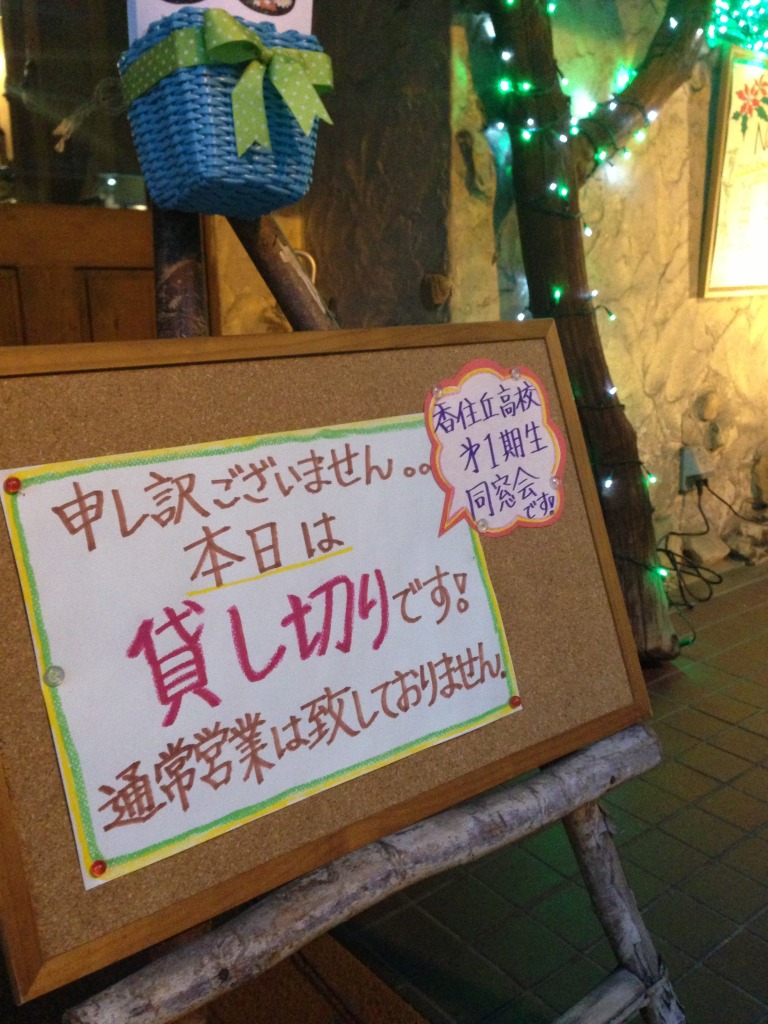 申し訳ございません。。
本日は
貸し切りです!
通常営業は致しておりません。
香住丘高校
第1期生
同窓会
です!